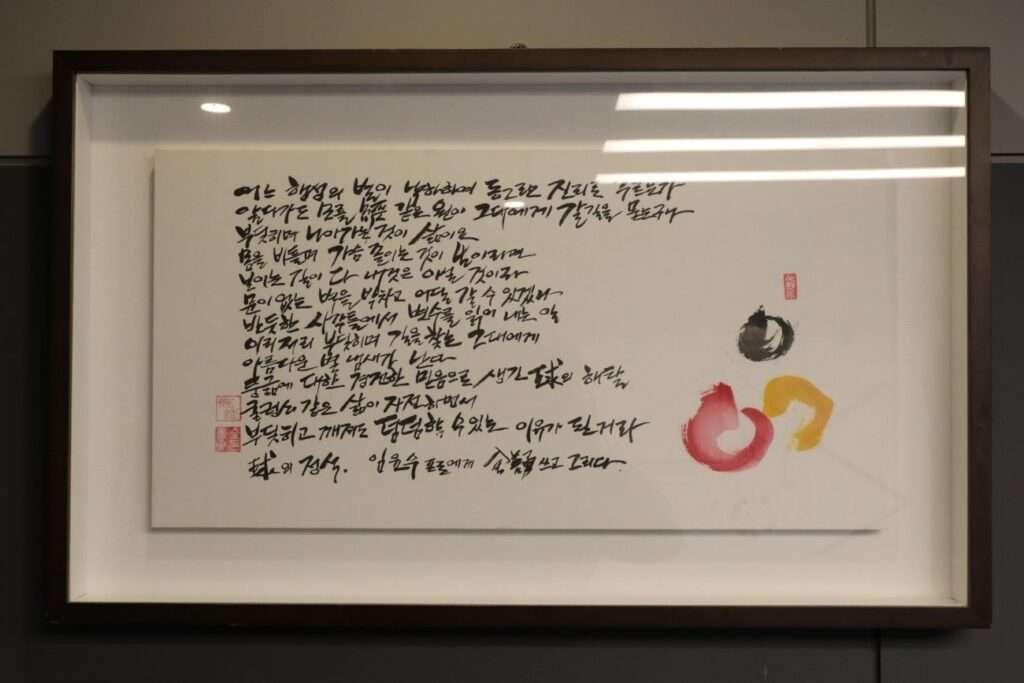 어느 행성의 별이 낙하하여 동그란 진리로 구르는가
알다가도 모를 같은 원이 그대에게 갈길을 묻는구나
부딪히며 나아가는 것이 삶이요
몸을 비틀며 가슴 졸이는 것이
보이는 길이 다 내것은 아닐 것이라
문이 없는 벽을 박차고 어딜 갈 수 있겠나
반듯한 사각틀에서 변수를 읽어 내는 일
이리저리 부딪히며 길을 찾는 그대에게
아름다운 별 냄새가 난다
대한 경건한 믿음으로 생긴 球의 해탈
같은 삶이 자전하면서
부딪히고 깨져도 덤덤할 수 있는 이유가 된 거라
球의 정석. 임윤수 프로에게 쓰고 그리다.